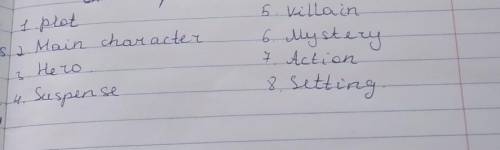 1 plot
2 Main character
3 Hero
4. Suspense
5. Villain
6 Mystery
7. Action
8. Setting